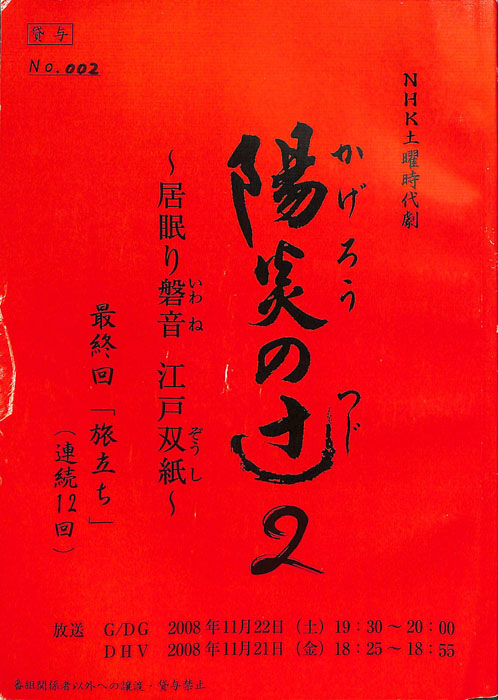 貸与
No.002
NHK土曜時代劇
かげろう つじ
陽炎の辻2
～居眠り磐音 江戸双紙～
いわね ぞうし
最終回「旅立ち」
(連続12回)
放送 G/DG 2008年11月22日(土)19:30～20:00
DHV 2008年11月21日(金)18:25～18:55
番組関係者以外への譲渡・貸与禁止